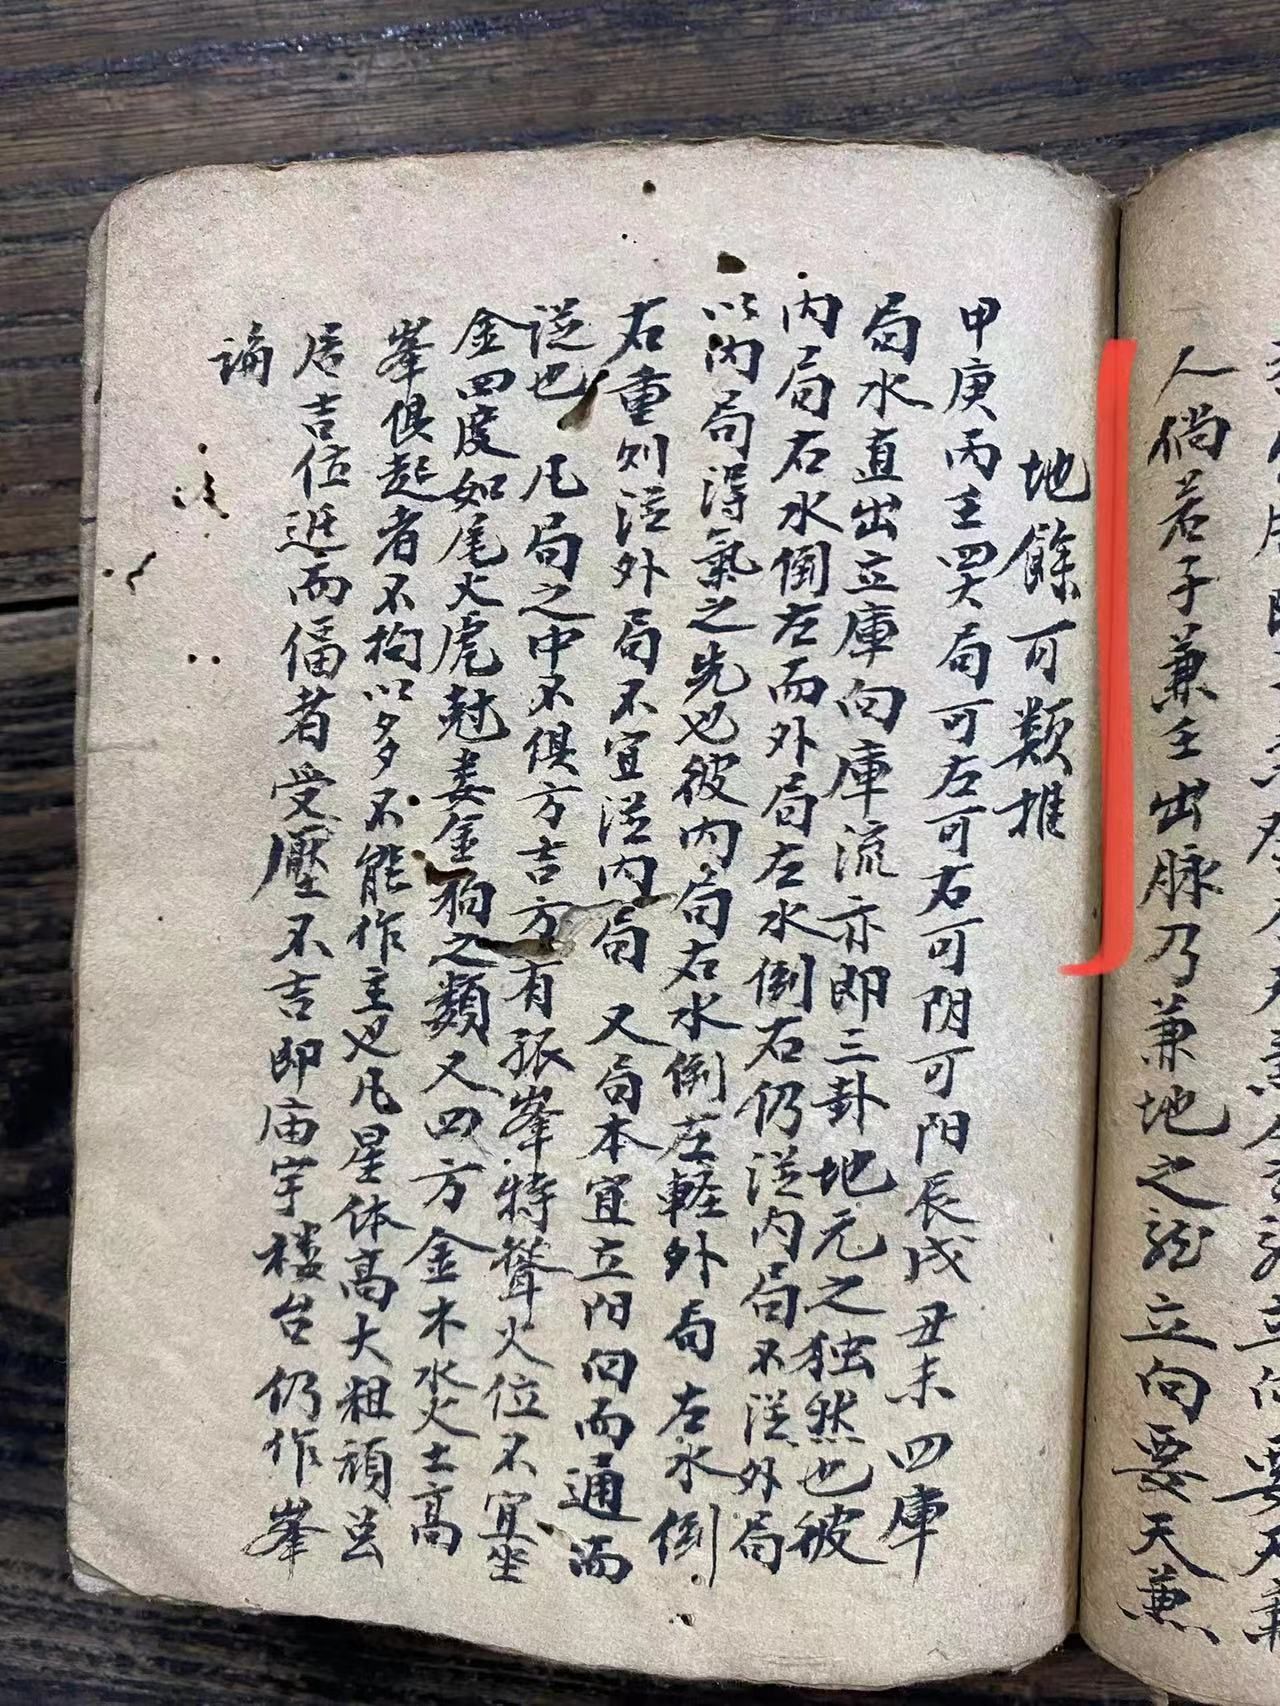 人倘若子兼壬出脉乃兼地之龙立向要天兼
地餘可類推
甲庚丙壬四大局可左可右可阴可阳辰戌丑未四庫
局水直出立庫向庫流亦即三卦地元之独然也彼
内局右水倒左而外局左水倒右仍從内局不從外局
以内局得氣之先也彼内局右水倒左軽外局左水倒
右重则從外局不宜從内局 又局本宜立阳向而通而
從也 凡局之中不俱方吉方有孤峯特聳火位不宜坐
金四度如尾火虎娄金狗之類又四方金木水火土高
峯俱起者不拘以多不能作主也凡星体高大粗頑
居吉位逼而偪者受壓不吉即庙宇楼台仍作峯
論